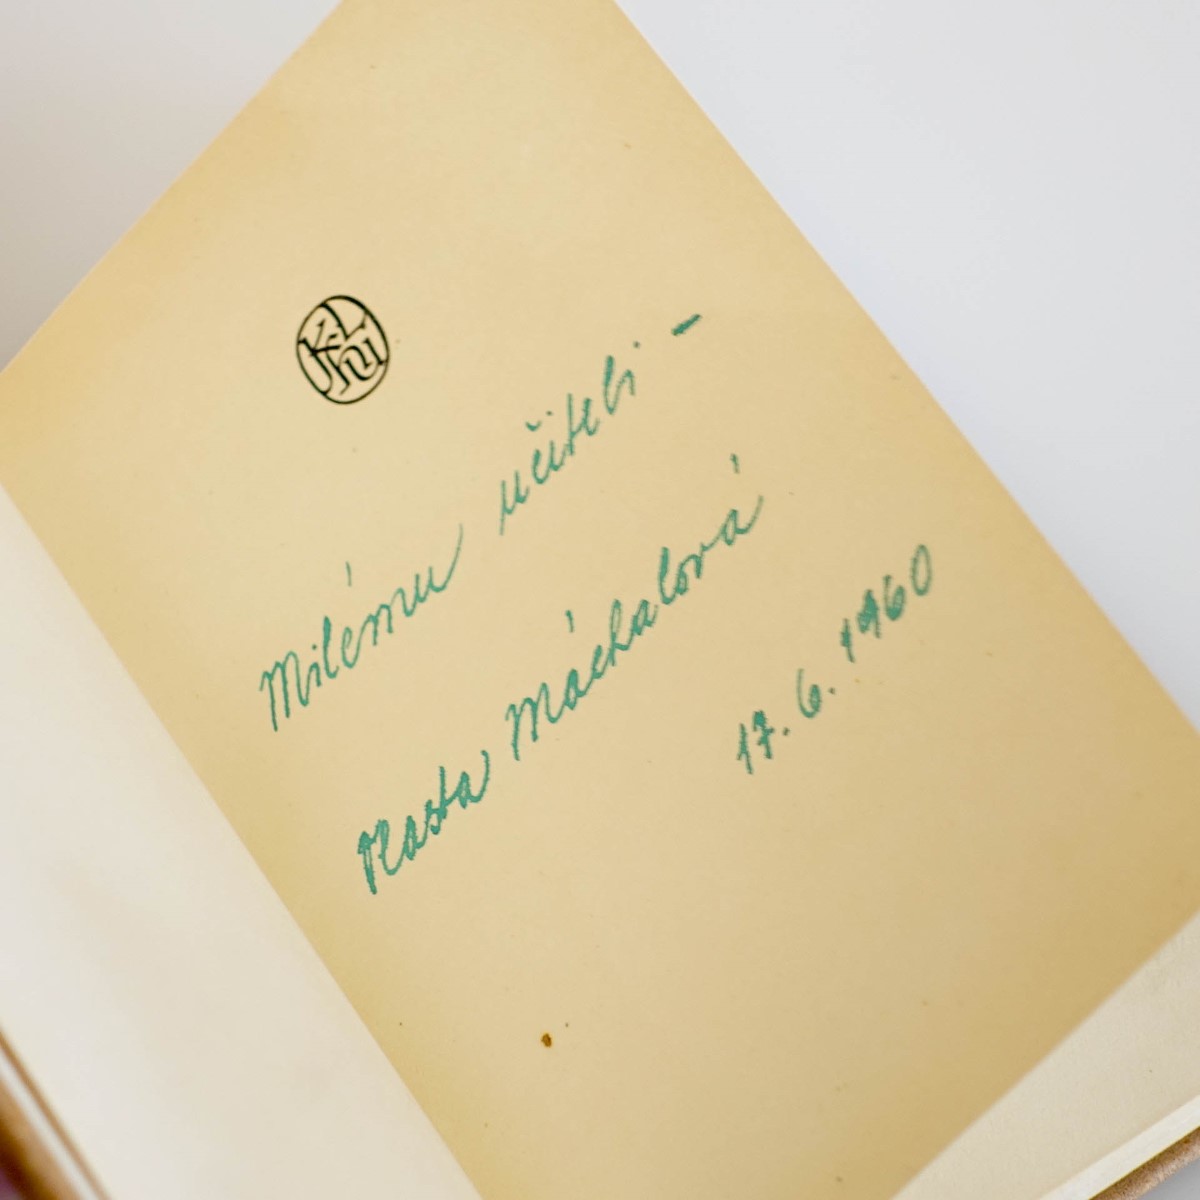 Milému učiteli -
Vlasta Máchalová
17. 6. 1960